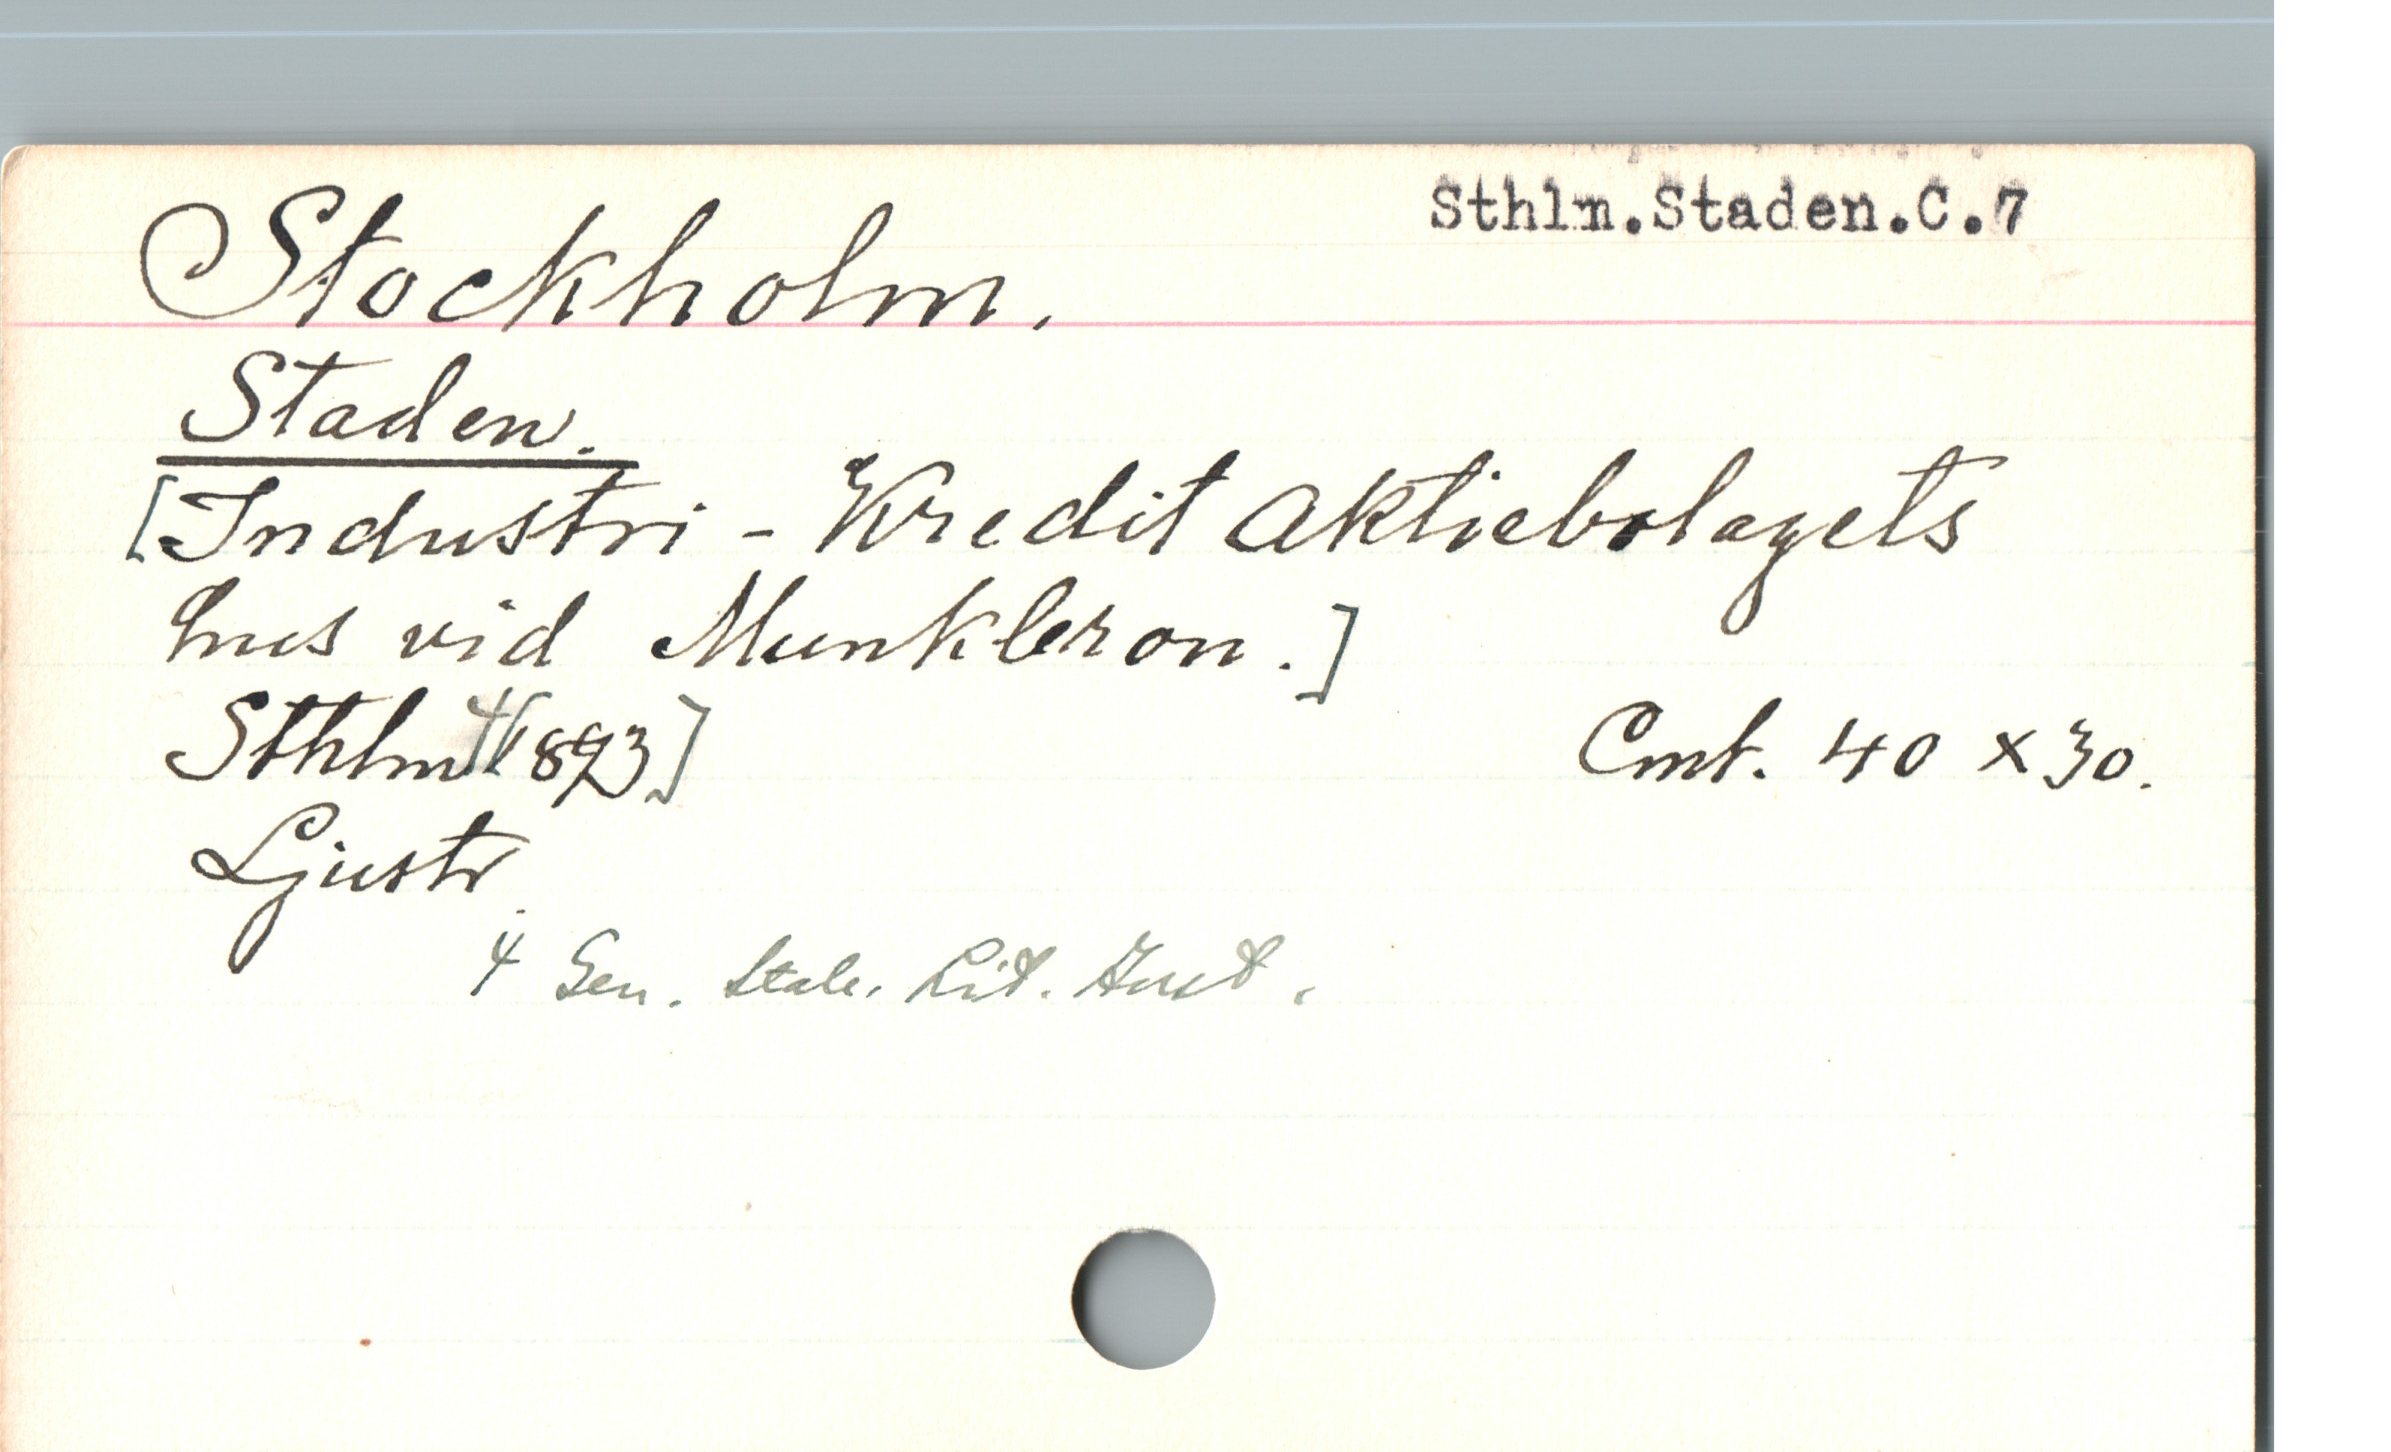 Sthlm.Staden.C.7
Stockholm.
Staden.
[Industri - Kredit Aktiebolagets
hus vid Munkbron.]
Sthlm 4 [1873]
Cmt. 40 x 30.
Ljustr.
4 Gen. Stab. Lit. Inst.